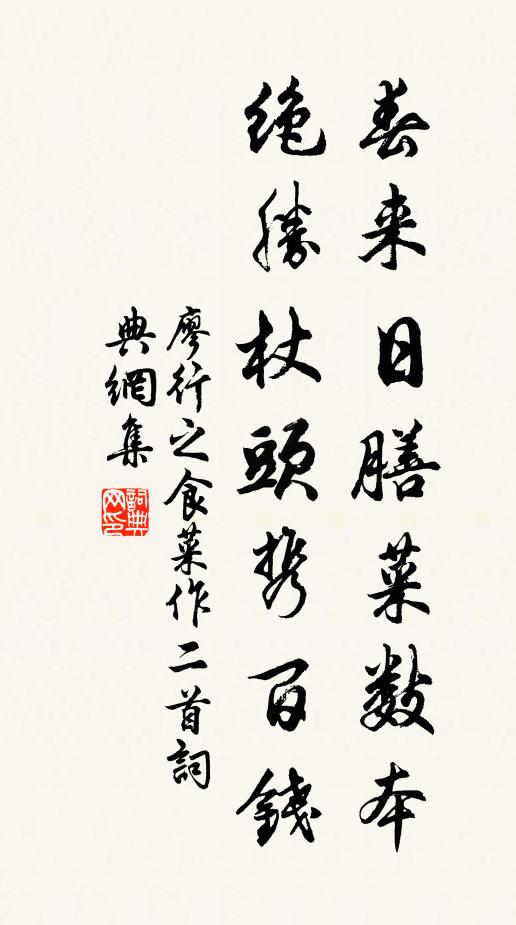 春来日膳菜数本
絶勝杖頭携百錢
廖行之食菜作二首詞
典網集
詞典网印